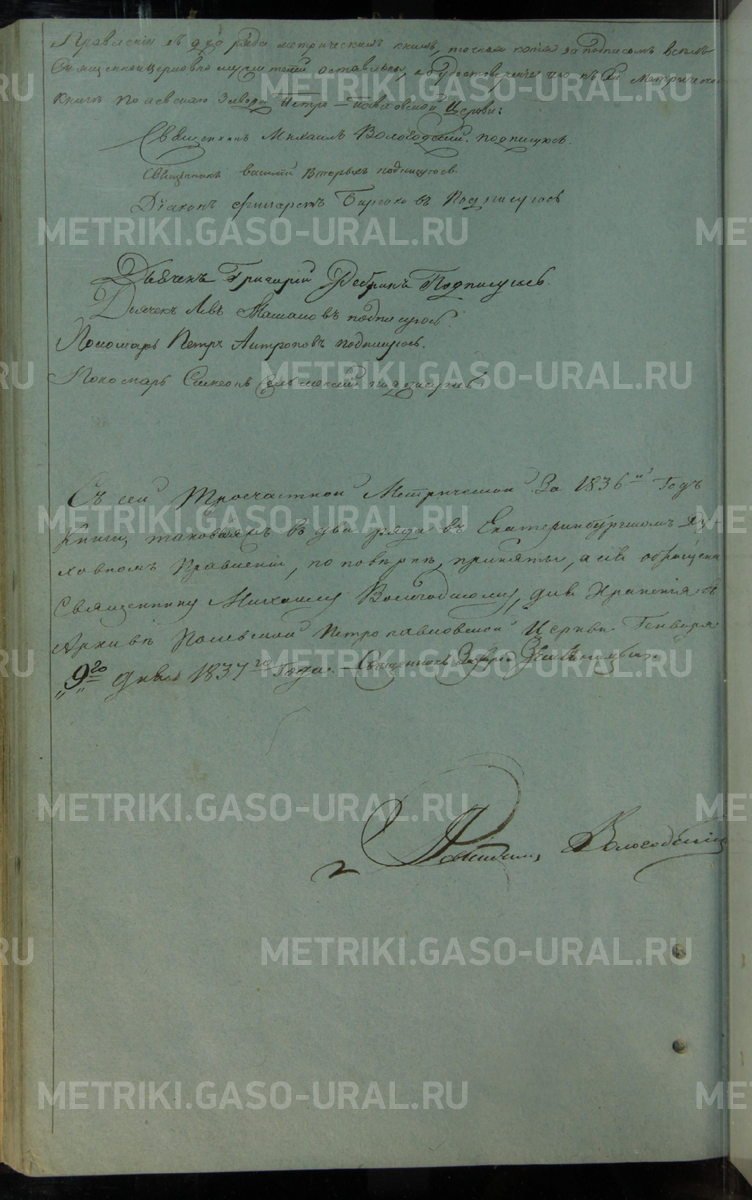 Правленіи въ два ряда метрическихъ книгъ, точная копія за подписомъ всѣхъ
Священноцерковно служителей оставлена, въ
книгѣ Полевскаго Завода Петро-Павловской Церкви:
Священникъ Михаилъ Вологодскій подписуюсь.
Священникъ василій Вторыхъ подписуюсь
Діаконъ подписуюсь
Дьячекъ Григорій Ребринъ Подписуюсь.
Дьячекъ Левъ подписуюсь
Пономарь Петръ Антроповъ подписуюсь.
Пономарь Симеонъ подписуюсь
Съ сей Троечастной Метрической За 1836й Годъ
книги, таковыяжъ въ два ряда въ Екатеринбургскомъ Ду-
ховномъ Правленіи, по повѣркѣ, приняты, а сія обращена
Священнику Михаилу Вологодскому, для Храненія въ
Архивѣ Полевской Петропавловской Церкви. Генваря
„9го дня 1837го Года. Священникъ
Вологодскій
METRIKI.GASO-URAL.RU